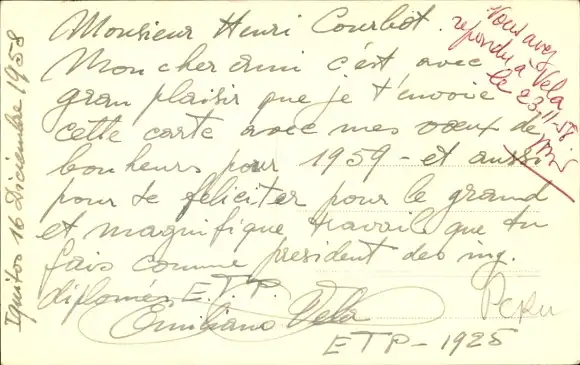 Monsieur Henri Courbot.
Mon cher ami c'est avec
gran plaisir que je t'envoie
cette carte avec mes voeux de
bonheurs pour 1959 - et aussi
pour te féliciter pour le grand
et magnifique travail que tu
fais comme president des ing.
diplomés E.T.P.
Emiliano Vela
ETP - 1925
Peru
Iquitos 16 Diciembre 1958
Vous avez
repondu à Vela
le 23-11-58.